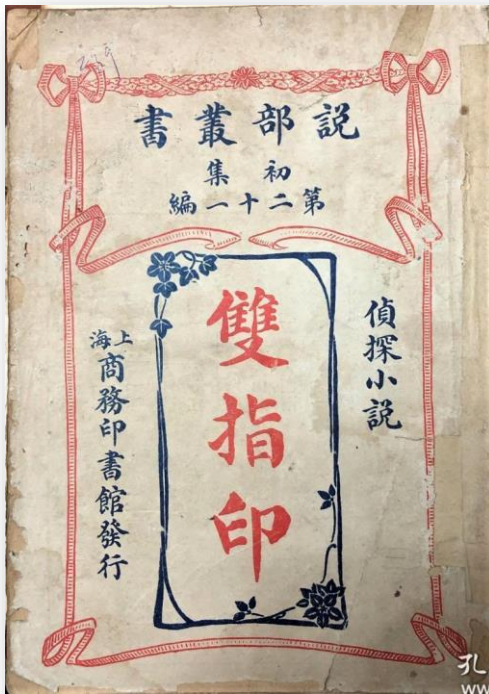 説部叢書
初集
第二十一編
偵探小說
雙指印
上海商務印書館發行
孔